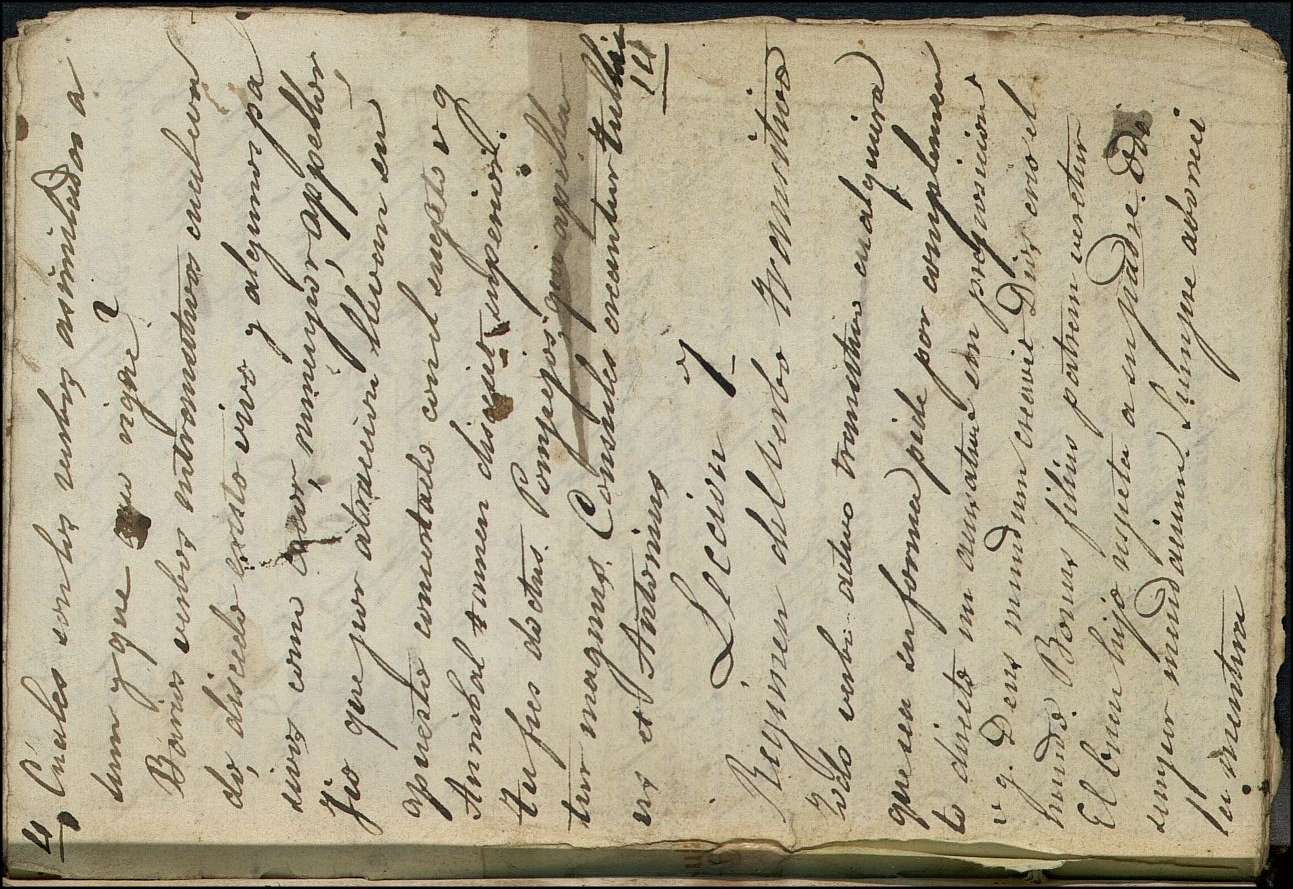 4 Cuales son los verbos asimilados a
sum y que rigen?
Varios verbos intransitivos cuales son
do, discedo existo vivo y algunos pa
sivos como creor, nuncupor, appellor,
fio que por atraccion llevan su
apuesto concertado con el sugeto v g
Annibal tamen discesit superior.
tu fies doctus. Pompejos quoque apella
tur magnus. Consules creantur tulli
us et Antonius 14
Leccion 7ª
Regimen del verbo transitivo
Todo verbo activo transitivo cualquiera
que sea su forma pide por complemen
to directo un acusativo sin preposicion
v g. Deus mundum creavit Dios crio el
mundo Bonus filius patrem veretur
El buen hijo respeta a su padre. Odi
semper mendacium. Siempre aborreci
la mentira